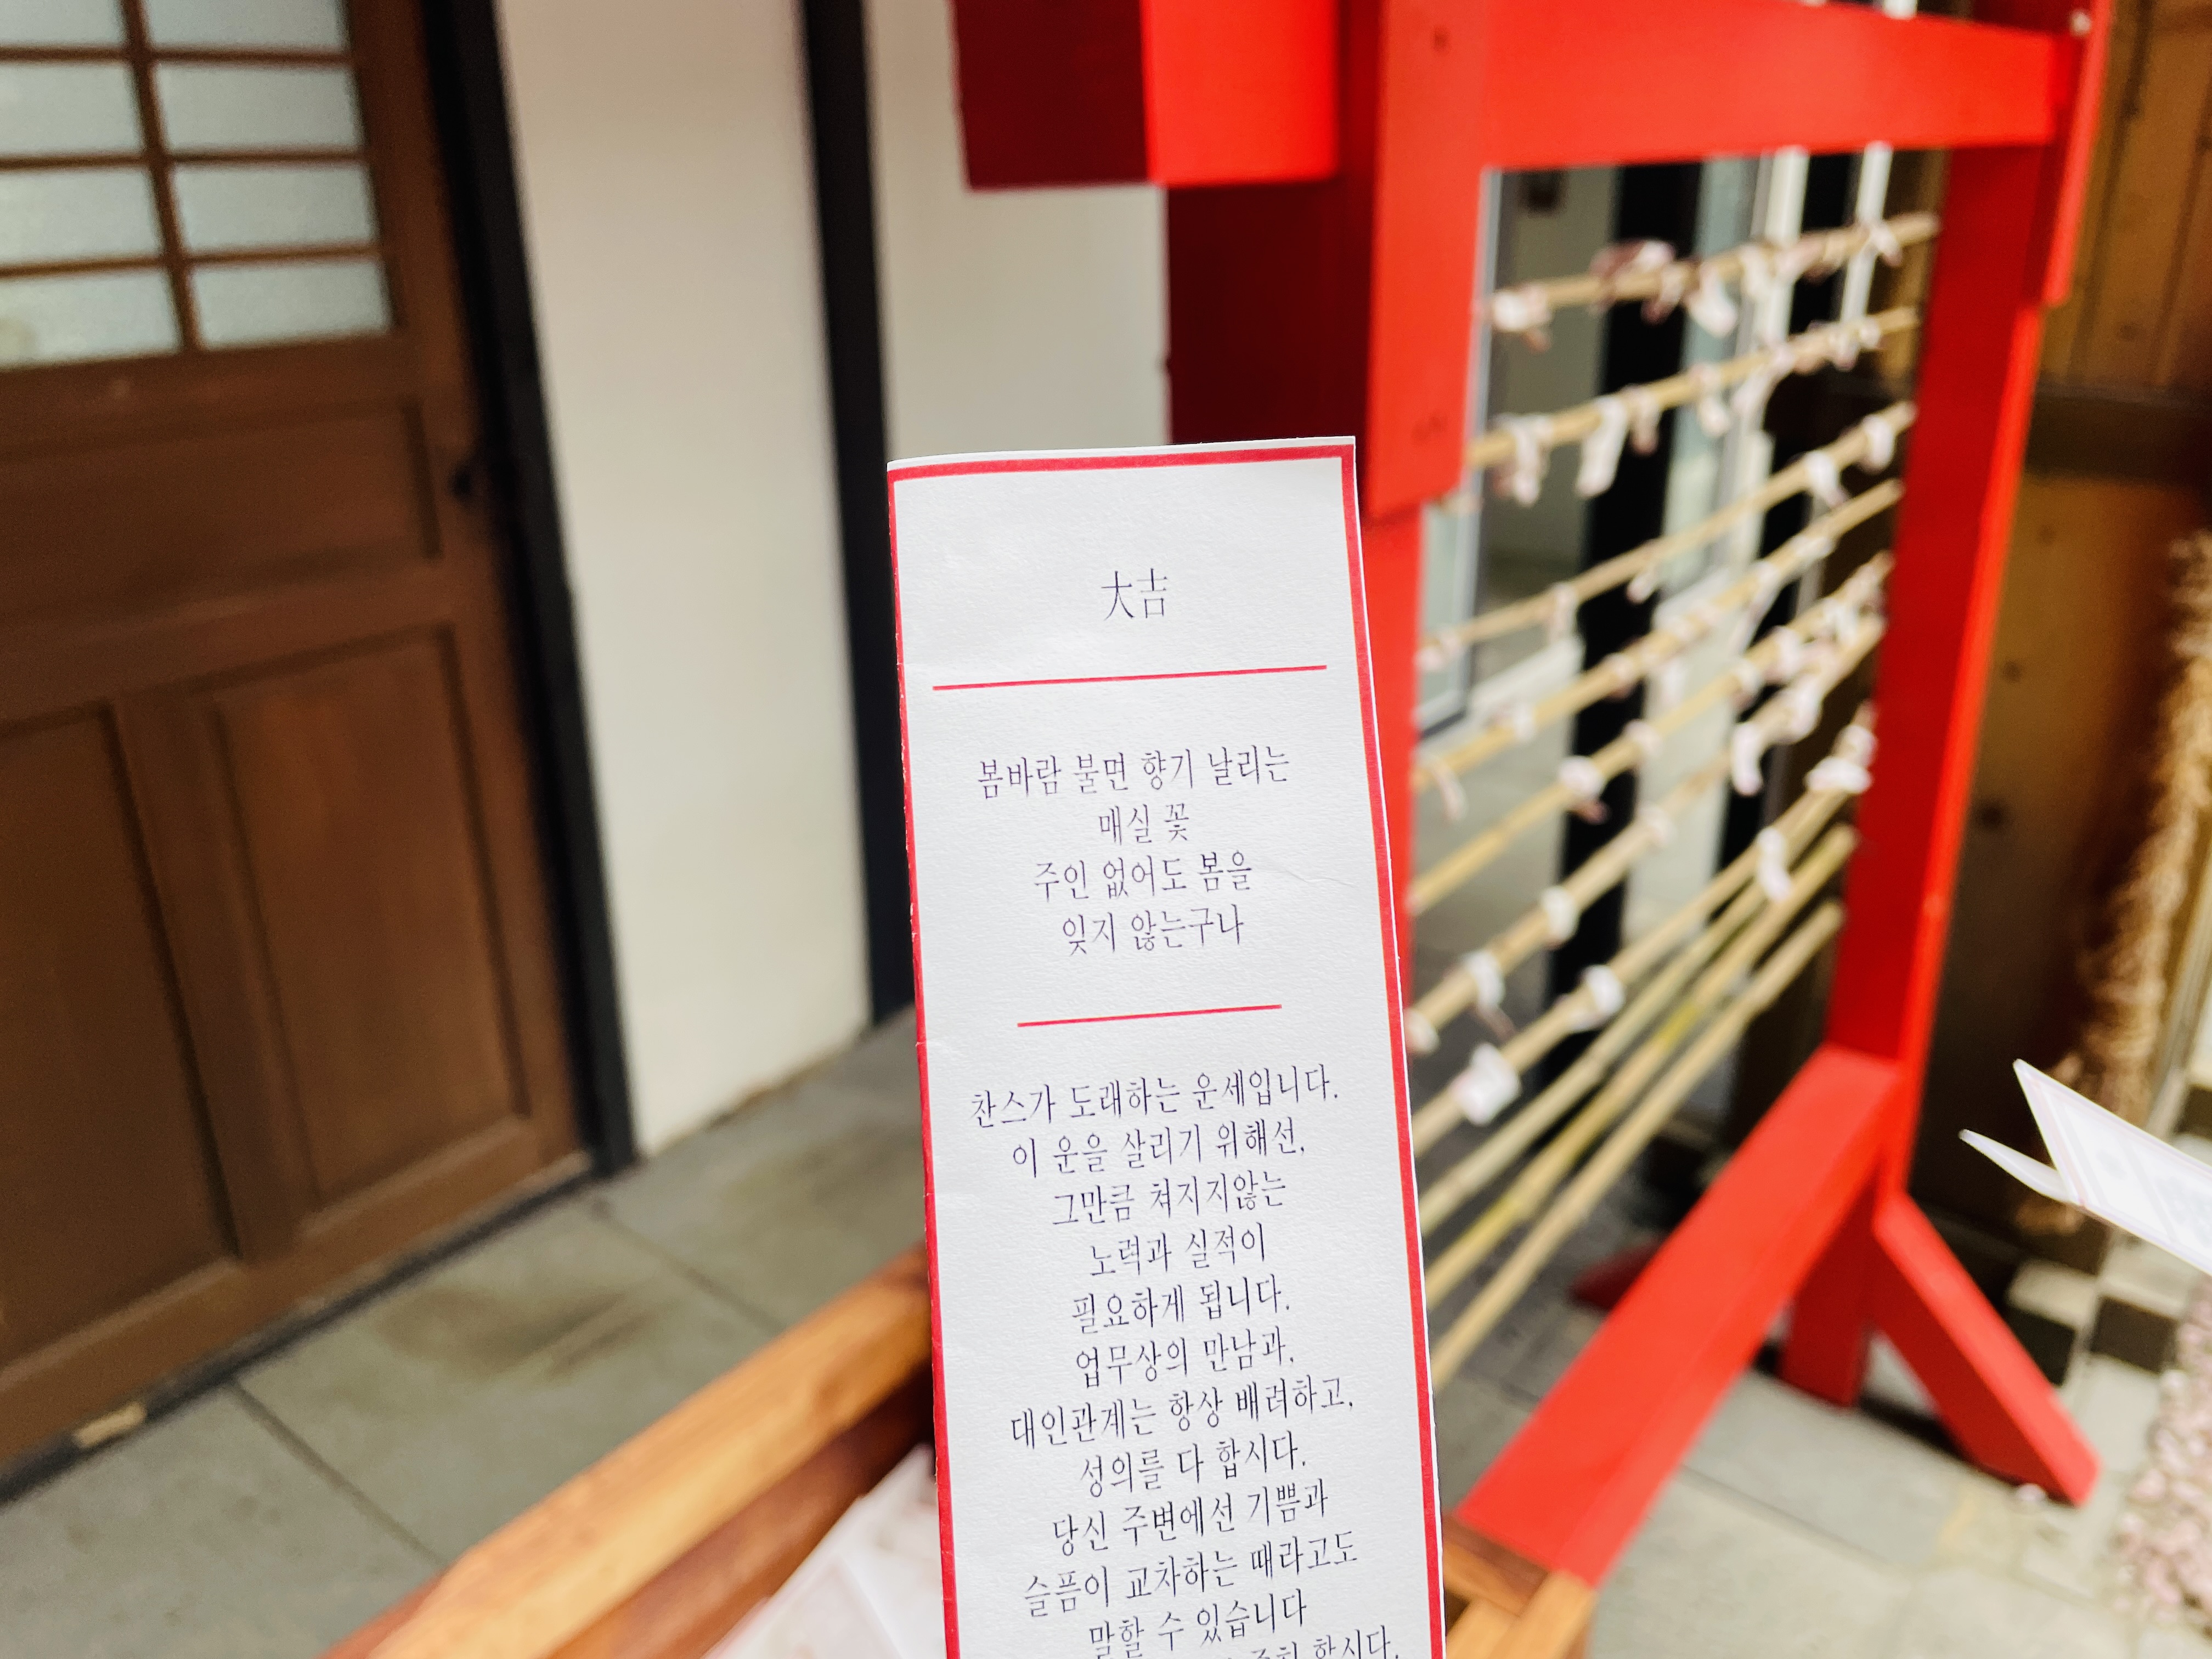 大吉
봄바람 불면 향기 날리는
매실 꽃
주인 없어도 봄을
잊지 않는구나
찬스가 도래하는 운세입니다.
이 운을 살리기 위해선,
그만큼 쳐지지않는
노력과 실적이
필요하게 됩니다.
업무상의 만남과,
대인관계는 항상 배려하고,
성의를 다 합시다.
당신 주변에선 기쁨과
슬픔이 교차하는 때라고도
말할 수 있습니다
합시다.